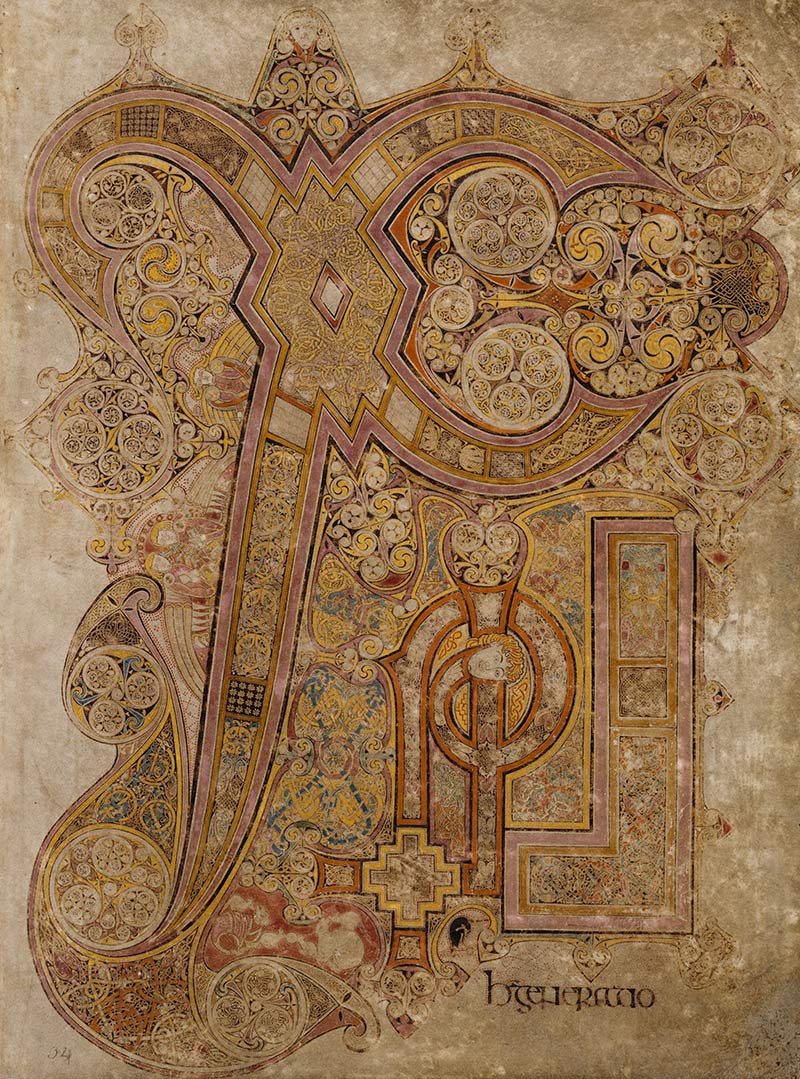 XPI
h generatio
34